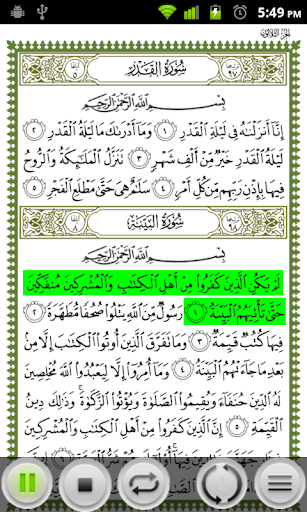 5:49 PM
الجزء الثلاثون
سُورَةُ الْقَدْرِ
٩٧
٥
بِسْمِ اللَّهِ الرَّحْمَٰنِ الرَّحِيمِ
إِنَّا أَنزَلْنَاهُ فِي لَيْلَةِ الْقَدْرِ ١ وَمَا أَدْرَاكَ مَا لَيْلَةُ الْقَدْرِ ٢
لَيْلَةُ الْقَدْرِ خَيْرٌ مِّنْ أَلْفِ شَهْرٍ ٣ تَنَزَّلُ الْمَلَائِكَةُ وَالرُّوحُ
فِيهَا بِإِذْنِ رَبِّهِم مِّن كُلِّ أَمْرٍ ٤ سَلَامٌ هِيَ حَتَّىٰ مَطْلَعِ الْفَجْرِ ٥
سُورَةُ الْبَيِّنَةِ
٩٨
٨
بِسْمِ اللَّهِ الرَّحْمَٰنِ الرَّحِيمِ
لَمْ يَكُنِ الَّذِينَ كَفَرُوا مِنْ أَهْلِ الْكِتَابِ وَالْمُشْرِكِينَ مُنفَكِّينَ
حَتَّىٰ تَأْتِيَهُمُ الْبَيِّنَةُ ١ رَسُولٌ مِّنَ اللَّهِ يَتْلُو صُحُفًا مُّطَهَّرَةً ٢
فِيهَا كُتُبٌ قَيِّمَةٌ ٣ وَمَا تَفَرَّقَ الَّذِينَ أُوتُوا الْكِتَابَ إِلَّا مِن
بَعْدِ مَا جَاءَتْهُمُ الْبَيِّنَةُ ٤ وَمَا أُمِرُوا إِلَّا لِيَعْبُدُوا اللَّهَ مُخْلِصِينَ
لَهُ الدِّينَ حُنَفَاءَ وَيُقِيمُوا الصَّلَاةَ وَيُؤْتُوا الزَّكَاةَ وَذَٰلِكَ دِينُ
الْقَيِّمَةِ ٥ إِنَّ الَّذِينَ كَفَرُوا مِنْ أَهْلِ الْكِتَابِ وَالْمُشْرِكِينَ